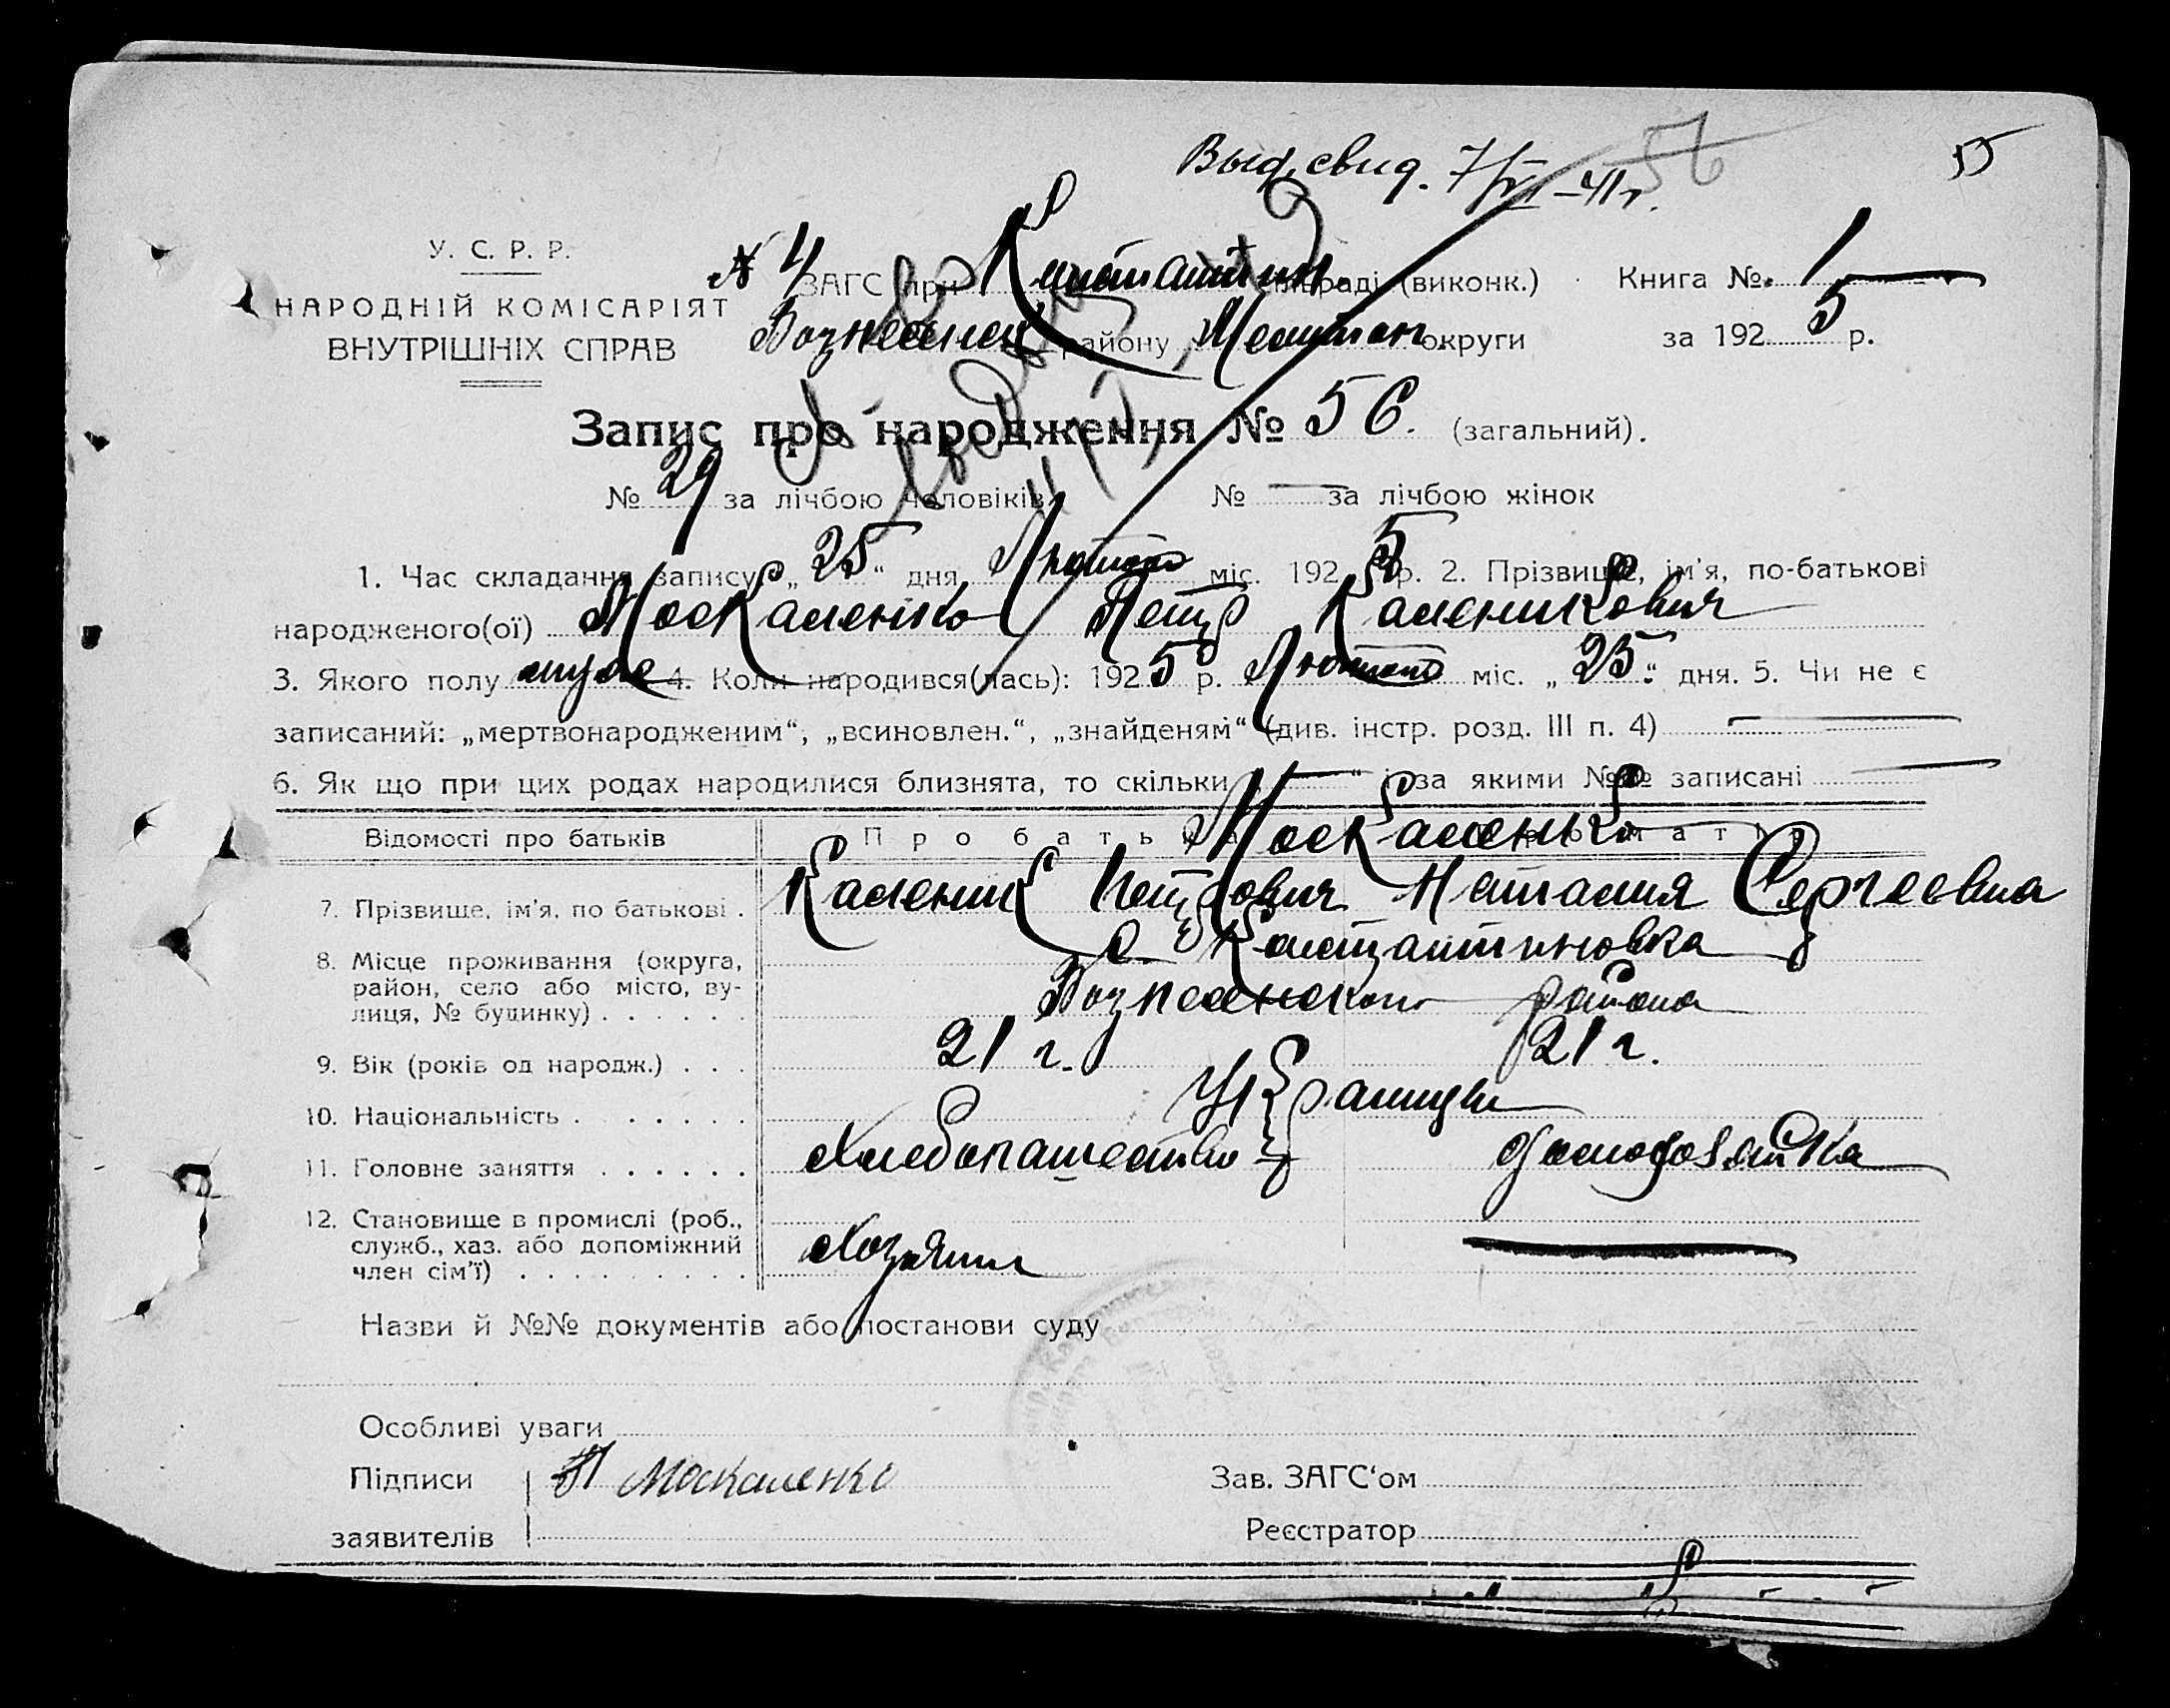 Выд. свид. 7/VI-41г. 56 55
У. С. Р. Р.
НАРОДНІЙ КОМІСАРІЯТ
ВНУТРІШНІХ СПРАВ
№ 4 ЗАГС при Констант раді (виконк.) Книга № 1
району округи за 1925 р.
Запис про народження № 56. (загальний).
№ 29 за лічбою чоловіків № — за лічбою жінок
1. Час складання запису „25“ дня Лютого міс. 1925 р. 2. Прізвище, ім'я, по-батькові
народженого(ої) Москаленко Петр Каленикович
3. Якого полу муже 4. Коли народився(лась): 1925 р. Лютого міс. „25“ дня. 5. Чи не є
записаний: „мертвонародженим“, „всиновлен.“, „знайденям“ (див. інстр. розд. III п. 4) —
6. Як що при цих родах народилися близнята, то скільки „—“ і за якими №№ записані —
Відомості про батьків Про батька Про матір
Москаленко
7. Прізвище, ім'я, по батькові . Каленик Петрович Наталия Сергеевна
8. Місце проживання (округа, с Константиновка
район, село або місто, ву- Вознесенского района
лиця, № будинку) . . . . . .
9. Вік (років од народж.) . . . 21 г. 21 г.
10. Національність . . . . . . Украинцы
11. Головне заняття . . . . . . Хлебопашество домохозяйка
12. Становище в промислі (роб.,
служб., хаз. або допоміжний Хозяин —
член сім'ї) . . . . . . . . .
Назви й №№ документів або постанови суду
Особливі уваги
Підписи Москаленко Зав. ЗАГС'ом
заявителів Реєстратор